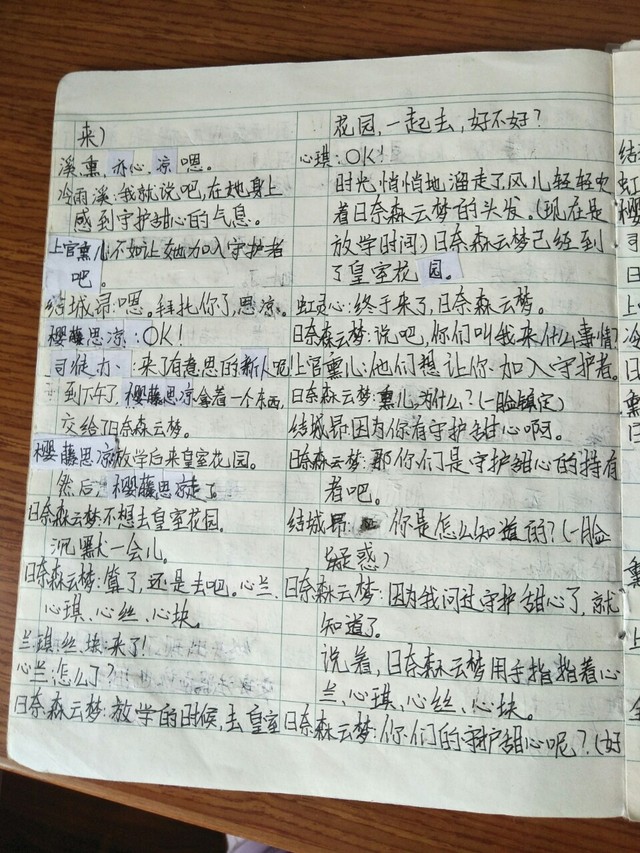 来）
溪，熏，亦心，凉：嗯。
冷雨溪：我就说吧，在她身上
感到守护甜心的气息。
上官熏儿：不如让她加入守护者
吧。
结城昂：嗯。拜托你了，思凉。
樱藤思凉：OK！
司候力：来了有意思的新人呢
到下午了，樱藤思凉拿着一个东西，
交给了日奈森云梦。
樱藤思凉：放学后来皇室花园。
然后，樱藤思凉走了
日奈森云梦不想去皇室花园。
沉默一会儿。
日奈森云梦：算了，还是去吧。心兰、
心琪、心丝、心块。
兰，琪，丝，块：来了！
心兰：怎么了？
日奈森云梦：放学的时候，去皇室
花园，一起去，好不好？
心琪：OK！
时光悄悄地溜走了，风儿轻轻吹
着日奈森云梦的头发。（现在是
放学时间）日奈森云梦已经到
了皇室花园。
虹灵心：终于来了，日奈森云梦。
日奈森云梦：说吧，你们叫我来什么事情
上官熏儿：他们想让你加入守护者。
日奈森云梦：熏儿，为什么？（一脸镇定）
结城昂：因为你有守护甜心啊。
日奈森云梦：那你们是守护甜心的持有
者吧。
结城昂：你是怎么知道的？（一脸
疑惑）
日奈森云梦：因为我问过守护甜心了，就
知道了。
说着，日奈森云梦用手指指着心
兰、心琪、心丝、心块。
日奈森云梦：你们的守护甜心呢？（好